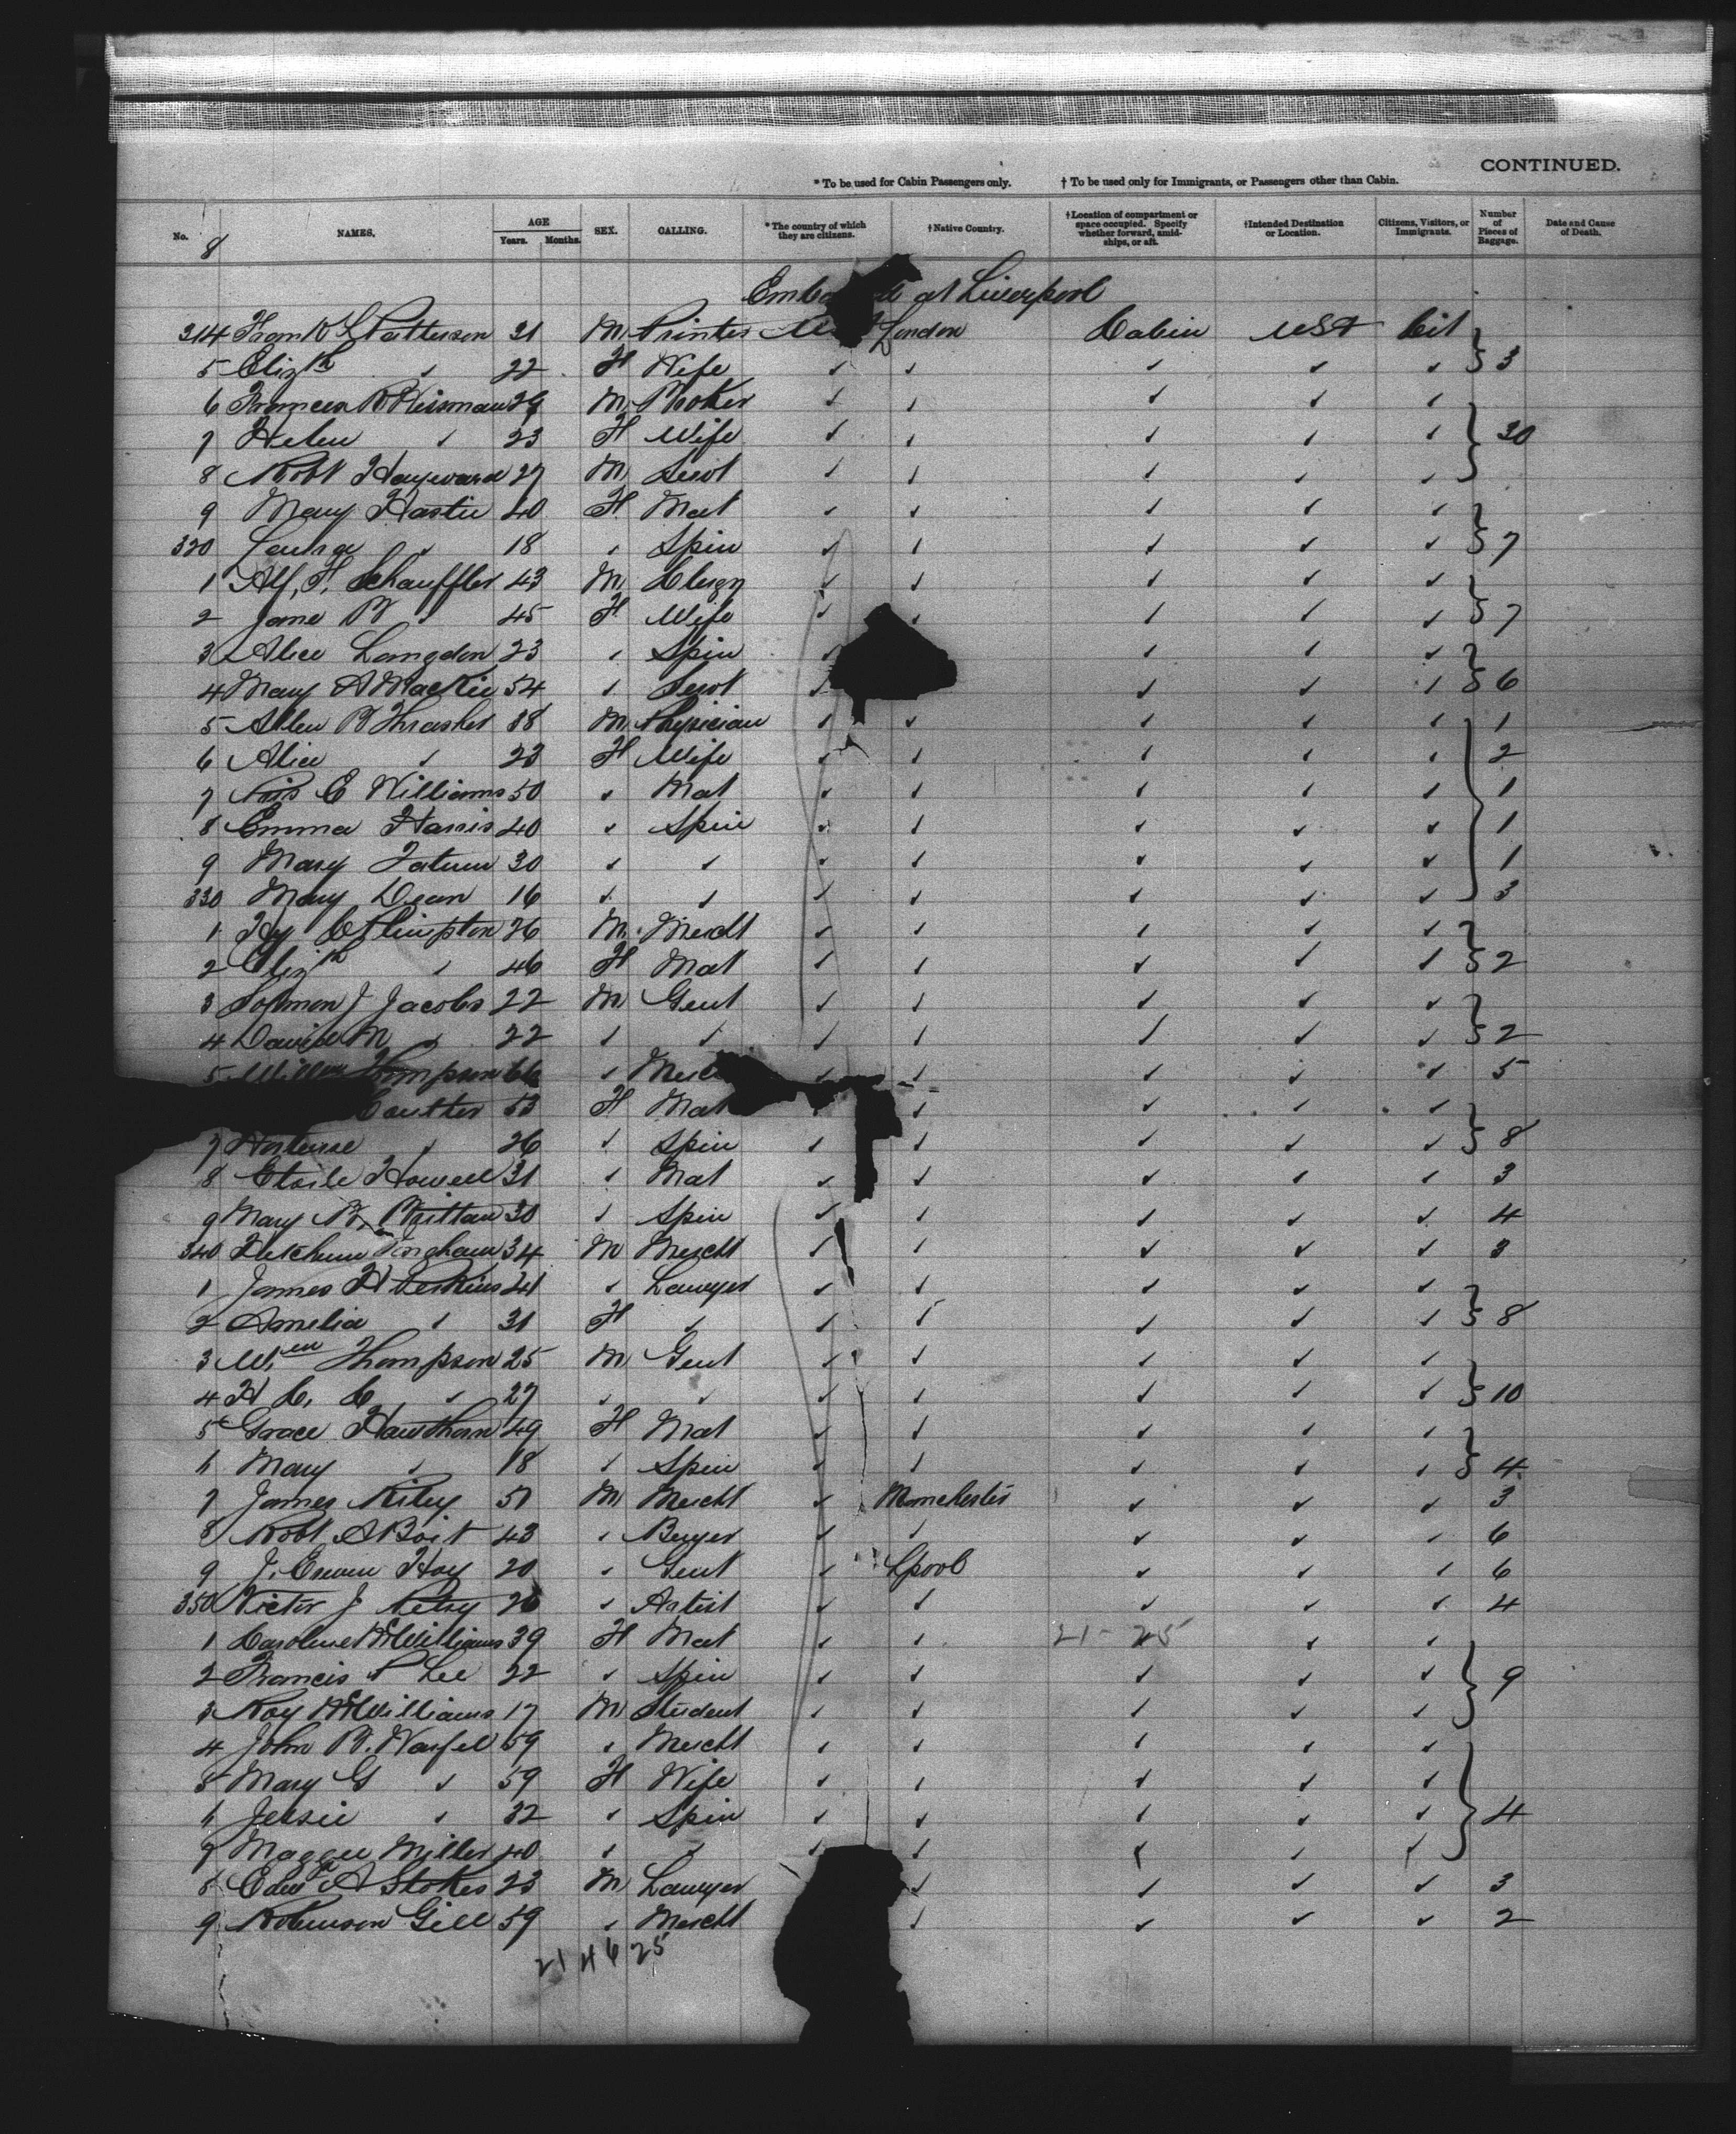 CONTINUED.
* To be used for Cabin Passengers only. † To be used only for Immigrants, or Passengers other than Cabin.
No. NAMES. AGE Years. Months. SEX. CALLING. * The country of which they are citizens. † Native Country. † Location of compartment or space occupied. Specify whether forward, amidships, or aft. † Intended Destination or Location. Citizens, Visitors, or Immigrants. Number of Pieces of Baggage. Date and Cause of Death.
8
at Liverpool
314 Frank L Patterson 31 M Printer London Cabin USA Cit
5 Elizth ✓ 22 F Wife ✓ ✓ ✓ ✓ ✓ } 3
6 Frances M Printer ✓ ✓ ✓ ✓ ✓
7 Helen ✓ 23 F Wife ✓ ✓ ✓ ✓ ✓ } 30
8 Robt Hayward 27 M Servt ✓ ✓ ✓ ✓ ✓
9 Mary Hastie 40 F Mat ✓ ✓ ✓ ✓ ✓
320 Laura ✓ 18 ✓ Spin ✓ ✓ ✓ ✓ ✓ } 7
1 Alf. F. Schauffler 43 M Clergy ✓ ✓ ✓ ✓ ✓
2 Jane B ✓ 45 F Wife ✓ ✓ ✓ ✓ ✓ } 7
3 Alice Langdon 23 ✓ Spin ✓ ✓ ✓ ✓
4 Mary A Mackie 54 ✓ Servt ✓ ✓ ✓ ✓ } 6
5 Allen B Thrasher 38 M Physician ✓ ✓ ✓ ✓ ✓ 1
6 Alice ✓ 23 F Wife ✓ ✓ ✓ ✓ ✓ 2
7 E Williams 50 ✓ Mat ✓ ✓ ✓ ✓ ✓ 1
8 Emma Harris 40 ✓ Spin ✓ ✓ ✓ ✓ ✓ 1
9 Mary Tatum 30 ✓ ✓ ✓ ✓ ✓ ✓ ✓ 1
330 Mary Dean 16 ✓ ✓ ✓ ✓ ✓ ✓ ✓ 3
1 Hy 26 M Mercht ✓ ✓ ✓ ✓ ✓
2 Elizth ✓ 46 F Mat ✓ ✓ ✓ ✓ ✓ } 2
3 Solomon J Jacobs 22 M Gent ✓ ✓ ✓ ✓ ✓
4 David M ✓ 22 ✓ ✓ ✓ ✓ ✓ ✓ ✓ } 2
5 Willm Thompson 66 ✓ ✓ ✓ ✓ ✓ ✓ 5
Coulter 53 F Mat ✓ ✓ ✓ ✓ ✓
7 Hortense ✓ 26 ✓ Spin ✓ ✓ ✓ ✓ ✓ } 8
8 Etoile Howell 31 ✓ Mat ✓ ✓ ✓ ✓ ✓ 3
9 Mary B. Brittan 30 ✓ Spin ✓ ✓ ✓ ✓ ✓ 4
340 34 M Mercht ✓ ✓ ✓ ✓ ✓ 3
1 James H Perkins 41 ✓ Lawyer ✓ ✓ ✓ ✓ ✓
2 Amelia ✓ 31 F ✓ ✓ ✓ ✓ ✓ ✓ } 8
3 Wm Thompson 25 M Gent ✓ ✓ ✓ ✓ ✓
4 H C. C ✓ 27 ✓ ✓ ✓ ✓ ✓ ✓ ✓ } 10
5 Grace Hawthorn 49 F Mat ✓ ✓ ✓ ✓ ✓
6 Mary ✓ 18 ✓ Spin ✓ ✓ ✓ ✓ ✓ } 4
7 James Riley 51 M Mercht ✓ Manchester ✓ ✓ ✓ 3
8 Robt A Boit 43 ✓ Buyer ✓ ✓ ✓ ✓ ✓ 6
9 J. Erwen Hoy 20 ✓ Gent ✓ Lpool ✓ ✓ ✓ 6
350 Victor J Petry 26 ✓ Artist ✓ ✓ ✓ ✓ ✓ 4
1 Caroline McWilliams 39 F Mat ✓ ✓ 21-25 ✓ ✓
2 Francis P Lee 22 ✓ Spin ✓ ✓ ✓ ✓ ✓ } 9
3 Roy McWilliams 17 M Student ✓ ✓ ✓ ✓ ✓
4 John B. Warfel 59 ✓ Mercht ✓ ✓ ✓ ✓ ✓
5 Mary G ✓ 59 F Wife ✓ ✓ ✓ ✓ ✓
6 Jessie ✓ 32 ✓ Spin ✓ ✓ ✓ ✓ ✓ } 4
7 Maggie Miller 40 ✓ ✓ ✓ ✓ ✓ ✓ ✓
8 Edwd A Stokes 23 M Lawyer ✓ ✓ ✓ ✓ 3
9 Robinson Gill 59 ✓ Mercht ✓ ✓ ✓ ✓ 2
21 46 25